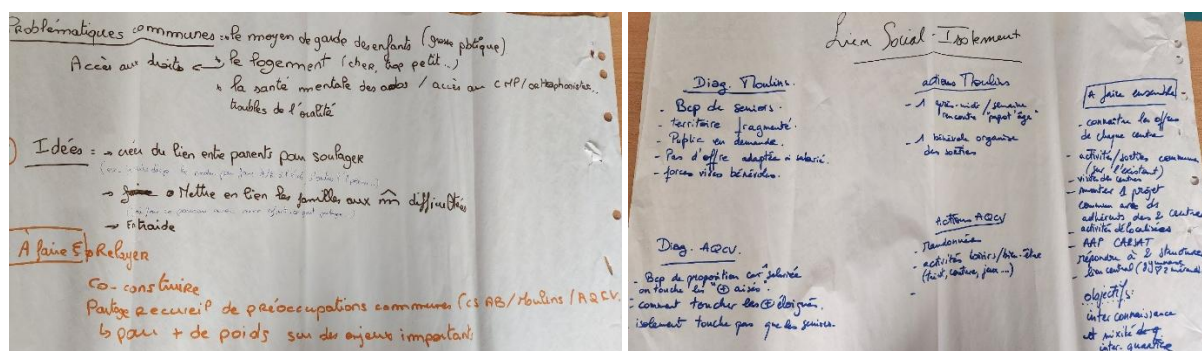 Problématiques communes : le moyen de garde des enfants (grosse pbtique)
Accès aux droits ↔ le logement (cher, trop petit..)
la santé mentale des ados / accès au CMP/orthophonistes..
troubles de l'oralité
Idées = → créer du lien entre parents pour soulager
→ Mettre en lien les familles aux m̂ difficultés
→ Entraide
A faire E → Relayer
co-construire
Partage recueil de préoccupations communes (CS AB/Moulins/AQCV
↳ pour + de poids sur des enjeux importants
Lien Social - Isolement
Diag. Moulins.
- Bcp de seniors.
- territoire fragmenté.
- Public en demande.
- Pas d'offre adaptée
- forces vives bénévoles.
Diag. AQCV.
- Bcp de proposition car salariée
on touche les "⊕ aisés".
- comment toucher les ⊕ éloignés.
isolement touche pas que les seniors.
actions Moulins
- 1 après-midi / semaine
rencontre "papot'âge"
- 1 bénévole organise
des sorties
Actions AQCV
- randonnées
- activités loisirs/bien-être
(tricot, couture, jeux...)
-
A faire ensemble
- connaître les offres
de chaque centre
- activité/sorties communes
(sur l'existant)
- visites des centres
- monter 1 projet
commun avec des
adhérents des 2 centres
- activités délocalisées
- AAP CARSAT
répondre à 2 structures
- lien central
objectifs :
inter connaissance
et mixité
inter-quartier